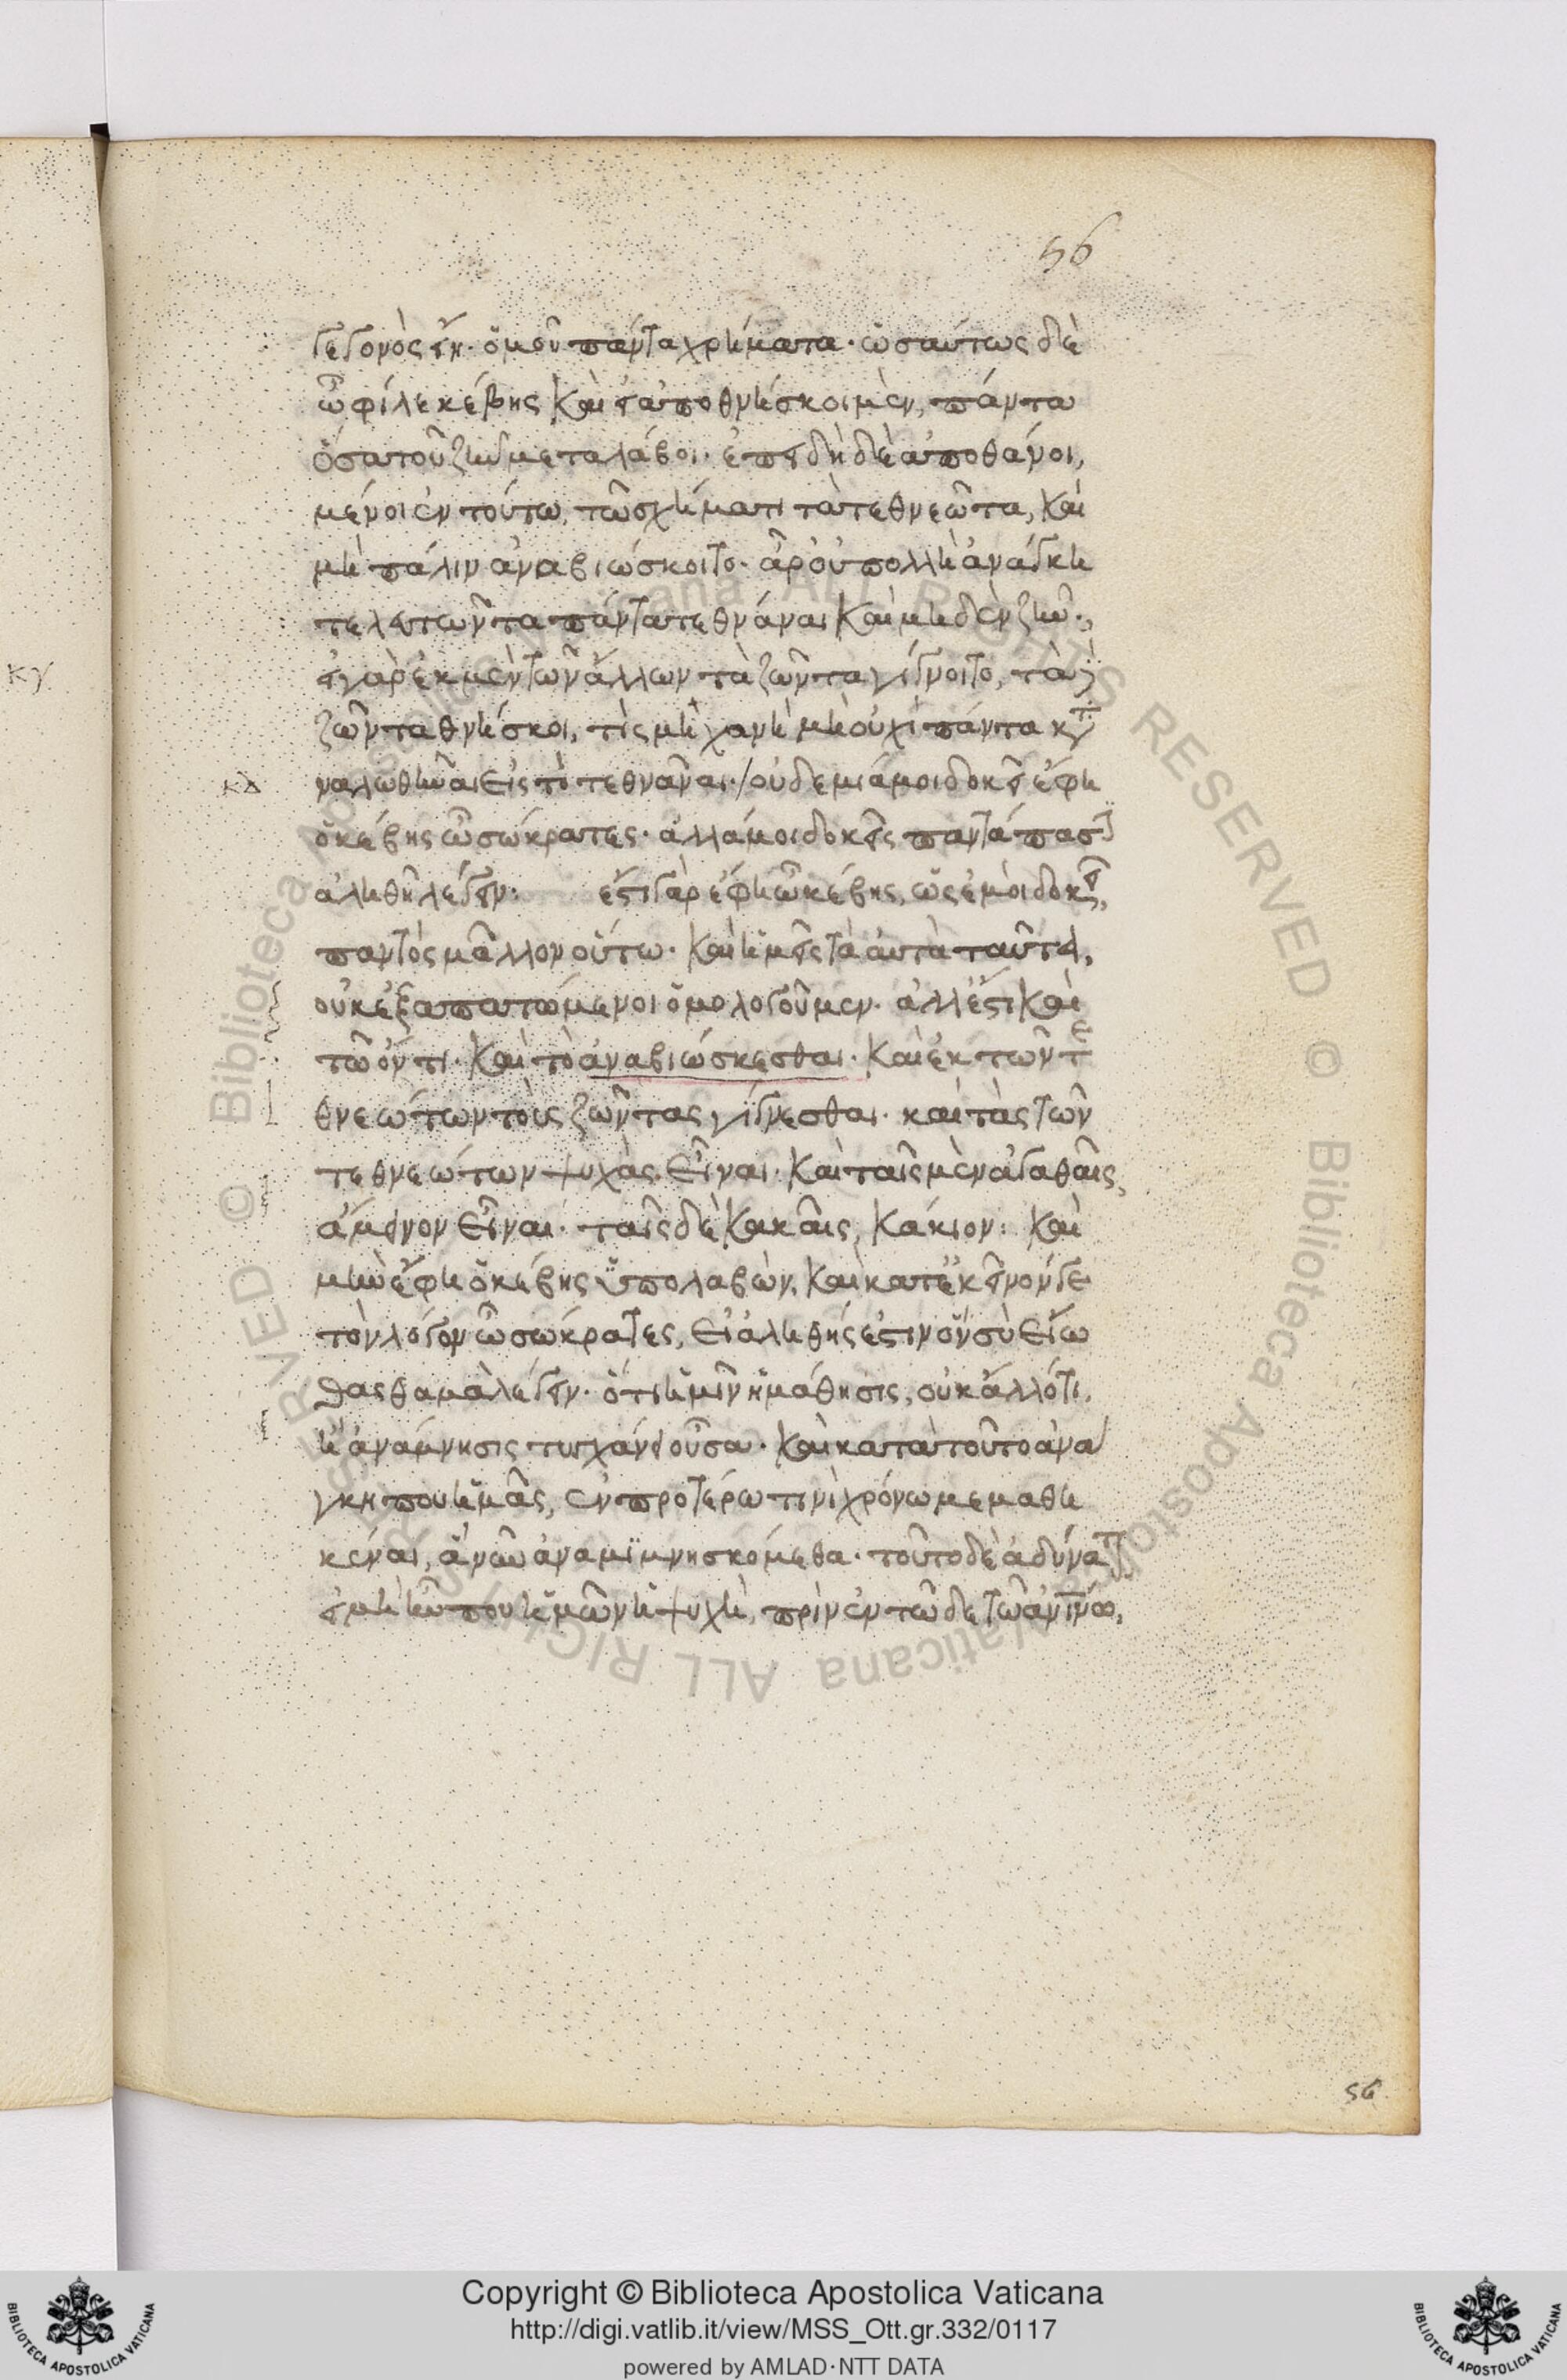 56
γεγονὸς εἴη. ὁμοῦ πάντα χρήματα. ὡσαύτως δὲ
ὦ φίλε κέβης καὶ εἰ ἀποθνήσκοι μὲν, πάντα
ὅσα τοῦ ζῆν μεταλάβοι. ἐπειδὴ δὲ ἀποθάνοι,
μένοι ἐν τούτω, τῶ σχήματι τὰ τεθνεῶτα, καὶ
μὴ πάλιν ἀναβιώσκοιτο. ἆρ οὐ πολλὴ ἀνάγκη
τελευτῶντα πάντα τεθνάναι καὶ μηδὲν ζῆν.,
εἰ γὰρ ἐκ μὲν τῶν ἄλλων τὰ ζῶντα γίγνοιτο, τὰ δὲ
ζῶντα θνήσκοι, τίς μηχανὴ μὴ οὐχὶ πάντα κατ
ναλωθῆναι εἰς τὸ τεθνᾶναι./ οὐδεμιά μοι δοκεῖ ἔφη
κδ
ὁ κέβης ὦ σώκρατες. ἀλλά μοι δοκεῖς παντάπασιν
ἀληθῆ λέγειν. ἔστι γὰρ ἔφη ὦ κέβης, ὡς ἐμοὶ δοκεῖ,
παντὸς μᾶλλον οὕτω. καὶ ἡμεῖς τὰ αὐτὰ ταῦτα,
οὐκ ἐξαπατώμενοι ὁμολογοῦμεν. ἀλλ ἔστι καὶ
τῶ ὄντι. καὶ τὸ ἀναβιώσκεσθαι. καὶ ἐκ τῶν τε
θνεώτων τοὺς ζῶντας γίγνεσθαι. καὶ τὰς τῶν
τεθνεώτων ψυχὰς εἶναι. καὶ ταῖς μὲν ἀγαθαῖς,
ἄμεινον εἶναι. ταῖς δὲ κακαῖς, κάκιον: καὶ
μὴν ἔφη ὁ κέβης ὑπολαβὼν, καὶ κατ ἐκεῖνόν γε
τὸν λόγον ὦ σώκρατες, εἰ ἀληθής ἐστιν ὃν σὺ εἴω
θας θαμὰ λέγειν. ὅτι ἡμῖν ἡ μάθησις, οὐκ ἄλλό τι
ἢ ἀνάμνησις τυγχάνει οὖσα. καὶ κατὰ τοῦτο ἀνά
γκη που ἡμᾶς, ἐν προτέρω τινὶ χρόνω μεμαθη
κέναι, ἃ νῦν ἀναμϊμνησκόμεθα. τοῦτο δὲ ἀδύνατον
εἰ μὴ ἦν που ἡμῶν ἡ ψυχὴ, πρὶν ἐν τῶδε τῶ ἀνίνω,
κγ
56
Copyright © Biblioteca Apostolica Vaticana
http://digi.vatlib.it/view/MSS_Ott.gr.332/0117
powered by AMLAD·NTT DATA